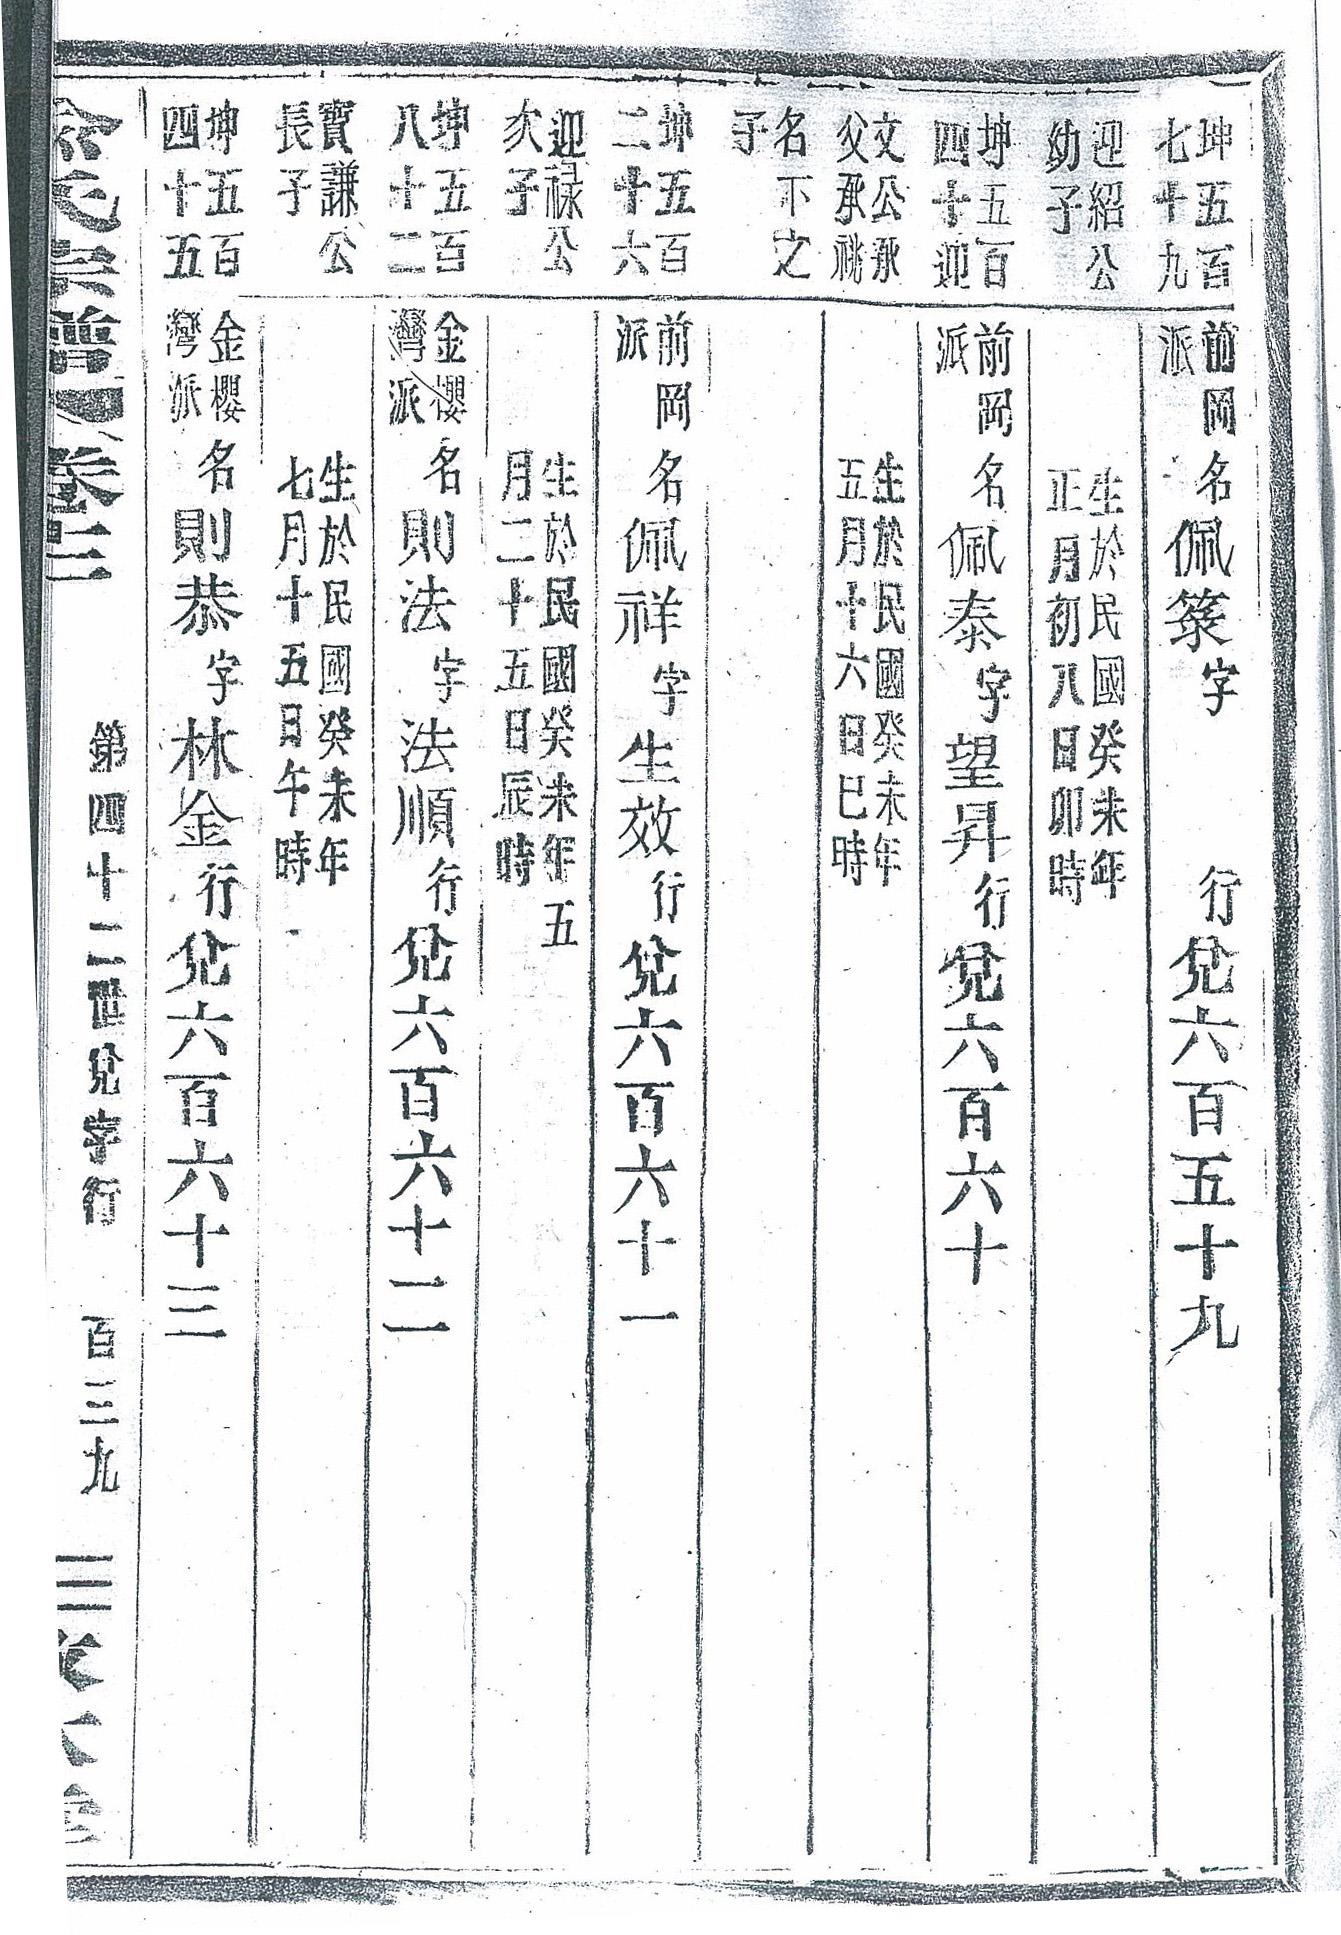 坤五百
七十九
前岡
派
名佩篆字
行兌六百五十九
迎紹公
幼子
生於民國癸未年
正月初八日卯時
坤五百
四十迎
前岡
派
名佩泰字望昇行兌六百六十
文公承
父承祧
生於民國癸未年
五月十六日巳時
名不之
子
坤五百
二十六
前岡
派
名佩祥字生效行兌六百六十一
迎祿公
次子
生於民國癸未年五
月二十五日辰時
坤五百
八十二
金櫻
灣派
名則法字法順行兌六百六十二
寶謙公
長子
生於民國癸未年
七月十五日午時
坤五百
四十五
金櫻
灣派
名則恭字林金行兌六百六十三
氏宗譜 卷 第四十二世兌字行 百三九